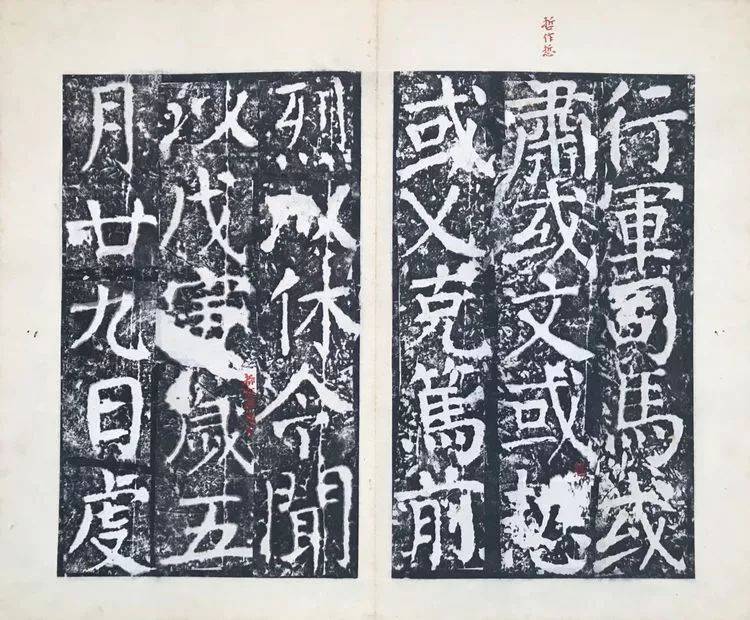 哲作悊
行軍司馬或
肅或文或悊
或乂克篤前
烈以休令聞
以戊寅歲五
月廿九日虔